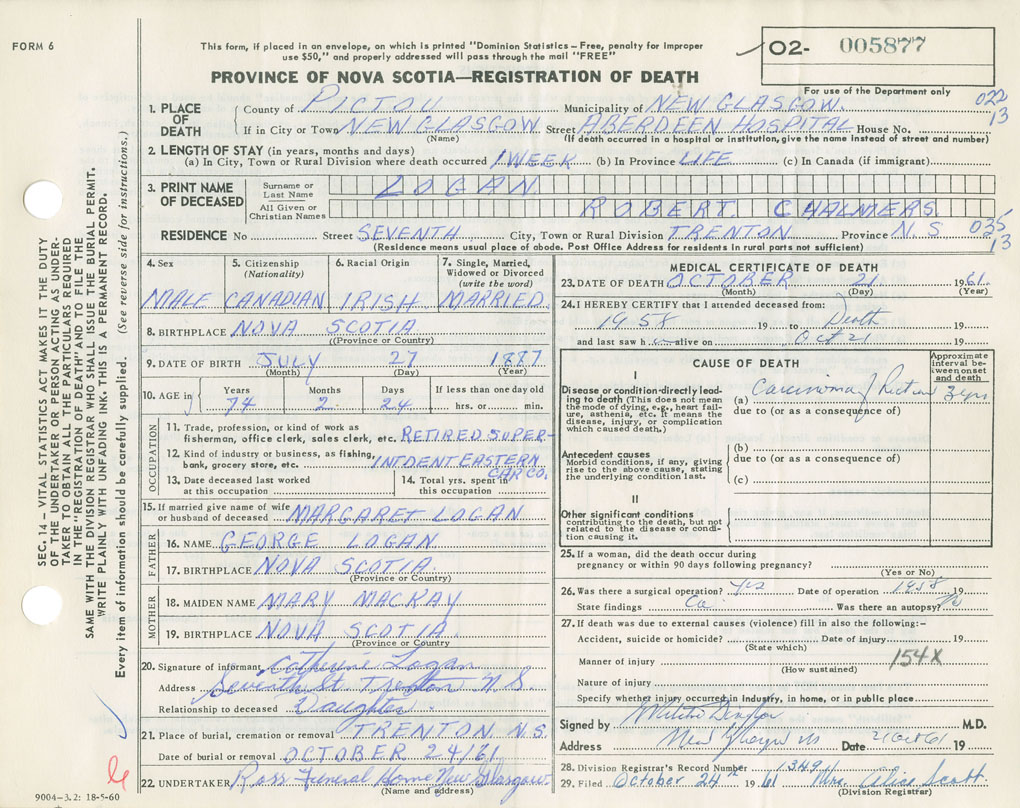 FORM 6
This form, if placed in an envelope, on which is printed "Dominion Statistics – Free, penalty for improper
use $50," and properly addressed will pass through the mail "FREE"
PROVINCE OF NOVA SCOTIA—REGISTRATION OF DEATH
O2- 005877
For use of the Department only
022
13
1. PLACE OF DEATH
County of PICTOU Municipality of NEW GLASGOW
If in City or Town NEW GLASGOW Street ABERDEEN HOSPITAL House No.
(Name) (If death occurred in a hospital or institution, give the name instead of street and number)
2. LENGTH OF STAY (in years, months and days)
(a) In City, Town or Rural Division where death occurred 1 WEEK (b) In Province LIFE (c) In Canada (if immigrant)
3. PRINT NAME OF DECEASED
Surname or Last Name LOGAN
All Given or Christian Names ROBERT CHALMERS
RESIDENCE No Street SEVENTH City, Town or Rural Division TRENTON Province N.S
035
13
(Residence means usual place of abode. Post Office Address for residents in rural parts not sufficient)
4. Sex 5. Citizenship (Nationality) 6. Racial Origin 7. Single, Married, Widowed or Divorced (write the word)
MALE CANADIAN IRISH MARRIED
8. BIRTHPLACE NOVA SCOTIA
(Province or Country)
9. DATE OF BIRTH JULY 27 1887
(Month) (Day) (Year)
10. AGE in Years Months Days If less than one day old
74 2 24 hrs. or min.
OCCUPATION
11. Trade, profession, or kind of work as
fisherman, office clerk, sales clerk, etc. RETIRED SUPER-
12. Kind of industry or business, as fishing,
bank, grocery store, etc. INTDENT EASTERN
CAR CO.
13. Date deceased last worked at this occupation 14. Total yrs. spent in this occupation
15. If married give name of wife
or husband of deceased MARGARET LOGAN
FATHER
16. NAME GEORGE LOGAN
17. BIRTHPLACE NOVA SCOTIA.
(Province or Country)
MOTHER
18. MAIDEN NAME MARY MACKAY
19. BIRTHPLACE NOVA SCOTIA
(Province or Country)
20. Signature of informant Catherine Logan
Address Seventh St. Trenton N S
Relationship to deceased Daughter.
21. Place of burial, cremation or removal TRENTON N.S.
Date of burial or removal OCTOBER 24/61
22. UNDERTAKER Ross Funeral Home New Glasgow.
(Name and address)
MEDICAL CERTIFICATE OF DEATH
23. DATE OF DEATH OCTOBER 21 1961
(Month) (Day) (Year)
24. I HEREBY CERTIFY that I attended deceased from:
1958 19 to Death 19
and last saw h alive on Oct 21 19
CAUSE OF DEATH
Approximate interval between onset and death
I
Disease or condition directly leading to death (This does not mean
the mode of dying, e.g., heart failure, asthenia, etc. It means the
disease, injury, or complication
which caused death.)
(a) Carcinoma of Rectum 3 yrs
due to (or as a consequence of)
Antecedent causes
Morbid conditions, if any, giving
rise to the above cause, stating
the underlying condition last.
(b)
due to (or as a consequence of)
(c)
II
Other significant conditions
contributing to the death, but not
related to the disease or condition causing it.
25. If a woman, did the death occur during
pregnancy or within 90 days following pregnancy?
(Yes or No)
26. Was there a surgical operation? Yes Date of operation 1958 19
State findings Ca. Was there an autopsy? No
27. If death was due to external causes (violence) fill in also the following:-
Accident, suicide or homicide? Date of injury 19
(State which)
Manner of injury 154X
(How sustained)
Nature of injury
Specify whether injury occurred in industry, in home, or in public place
Signed by M.D.
Address New Glasgow NS Date 21 Oct 61 19
28. Division Registrar's Record Number 1349
29. Filed October 24th 1961 Mrs. Alice Scott.
(Division Registrar)
SEC. 14 – VITAL STATISTICS ACT MAKES IT THE DUTY
OF THE UNDERTAKER OR PERSON ACTING AS UNDER-
TAKER TO OBTAIN ALL THE PARTICULARS REQUIRED
IN THE "REGISTRATION OF DEATH" AND TO FILE THE
SAME WITH THE DIVISION REGISTRAR WHO SHALL ISSUE THE BURIAL PERMIT.
WRITE PLAINLY WITH UNFADING INK. THIS IS A PERMANENT RECORD.
Every item of information should be carefully supplied. (See reverse side for instructions.)
9004-3.2: 18-5-60